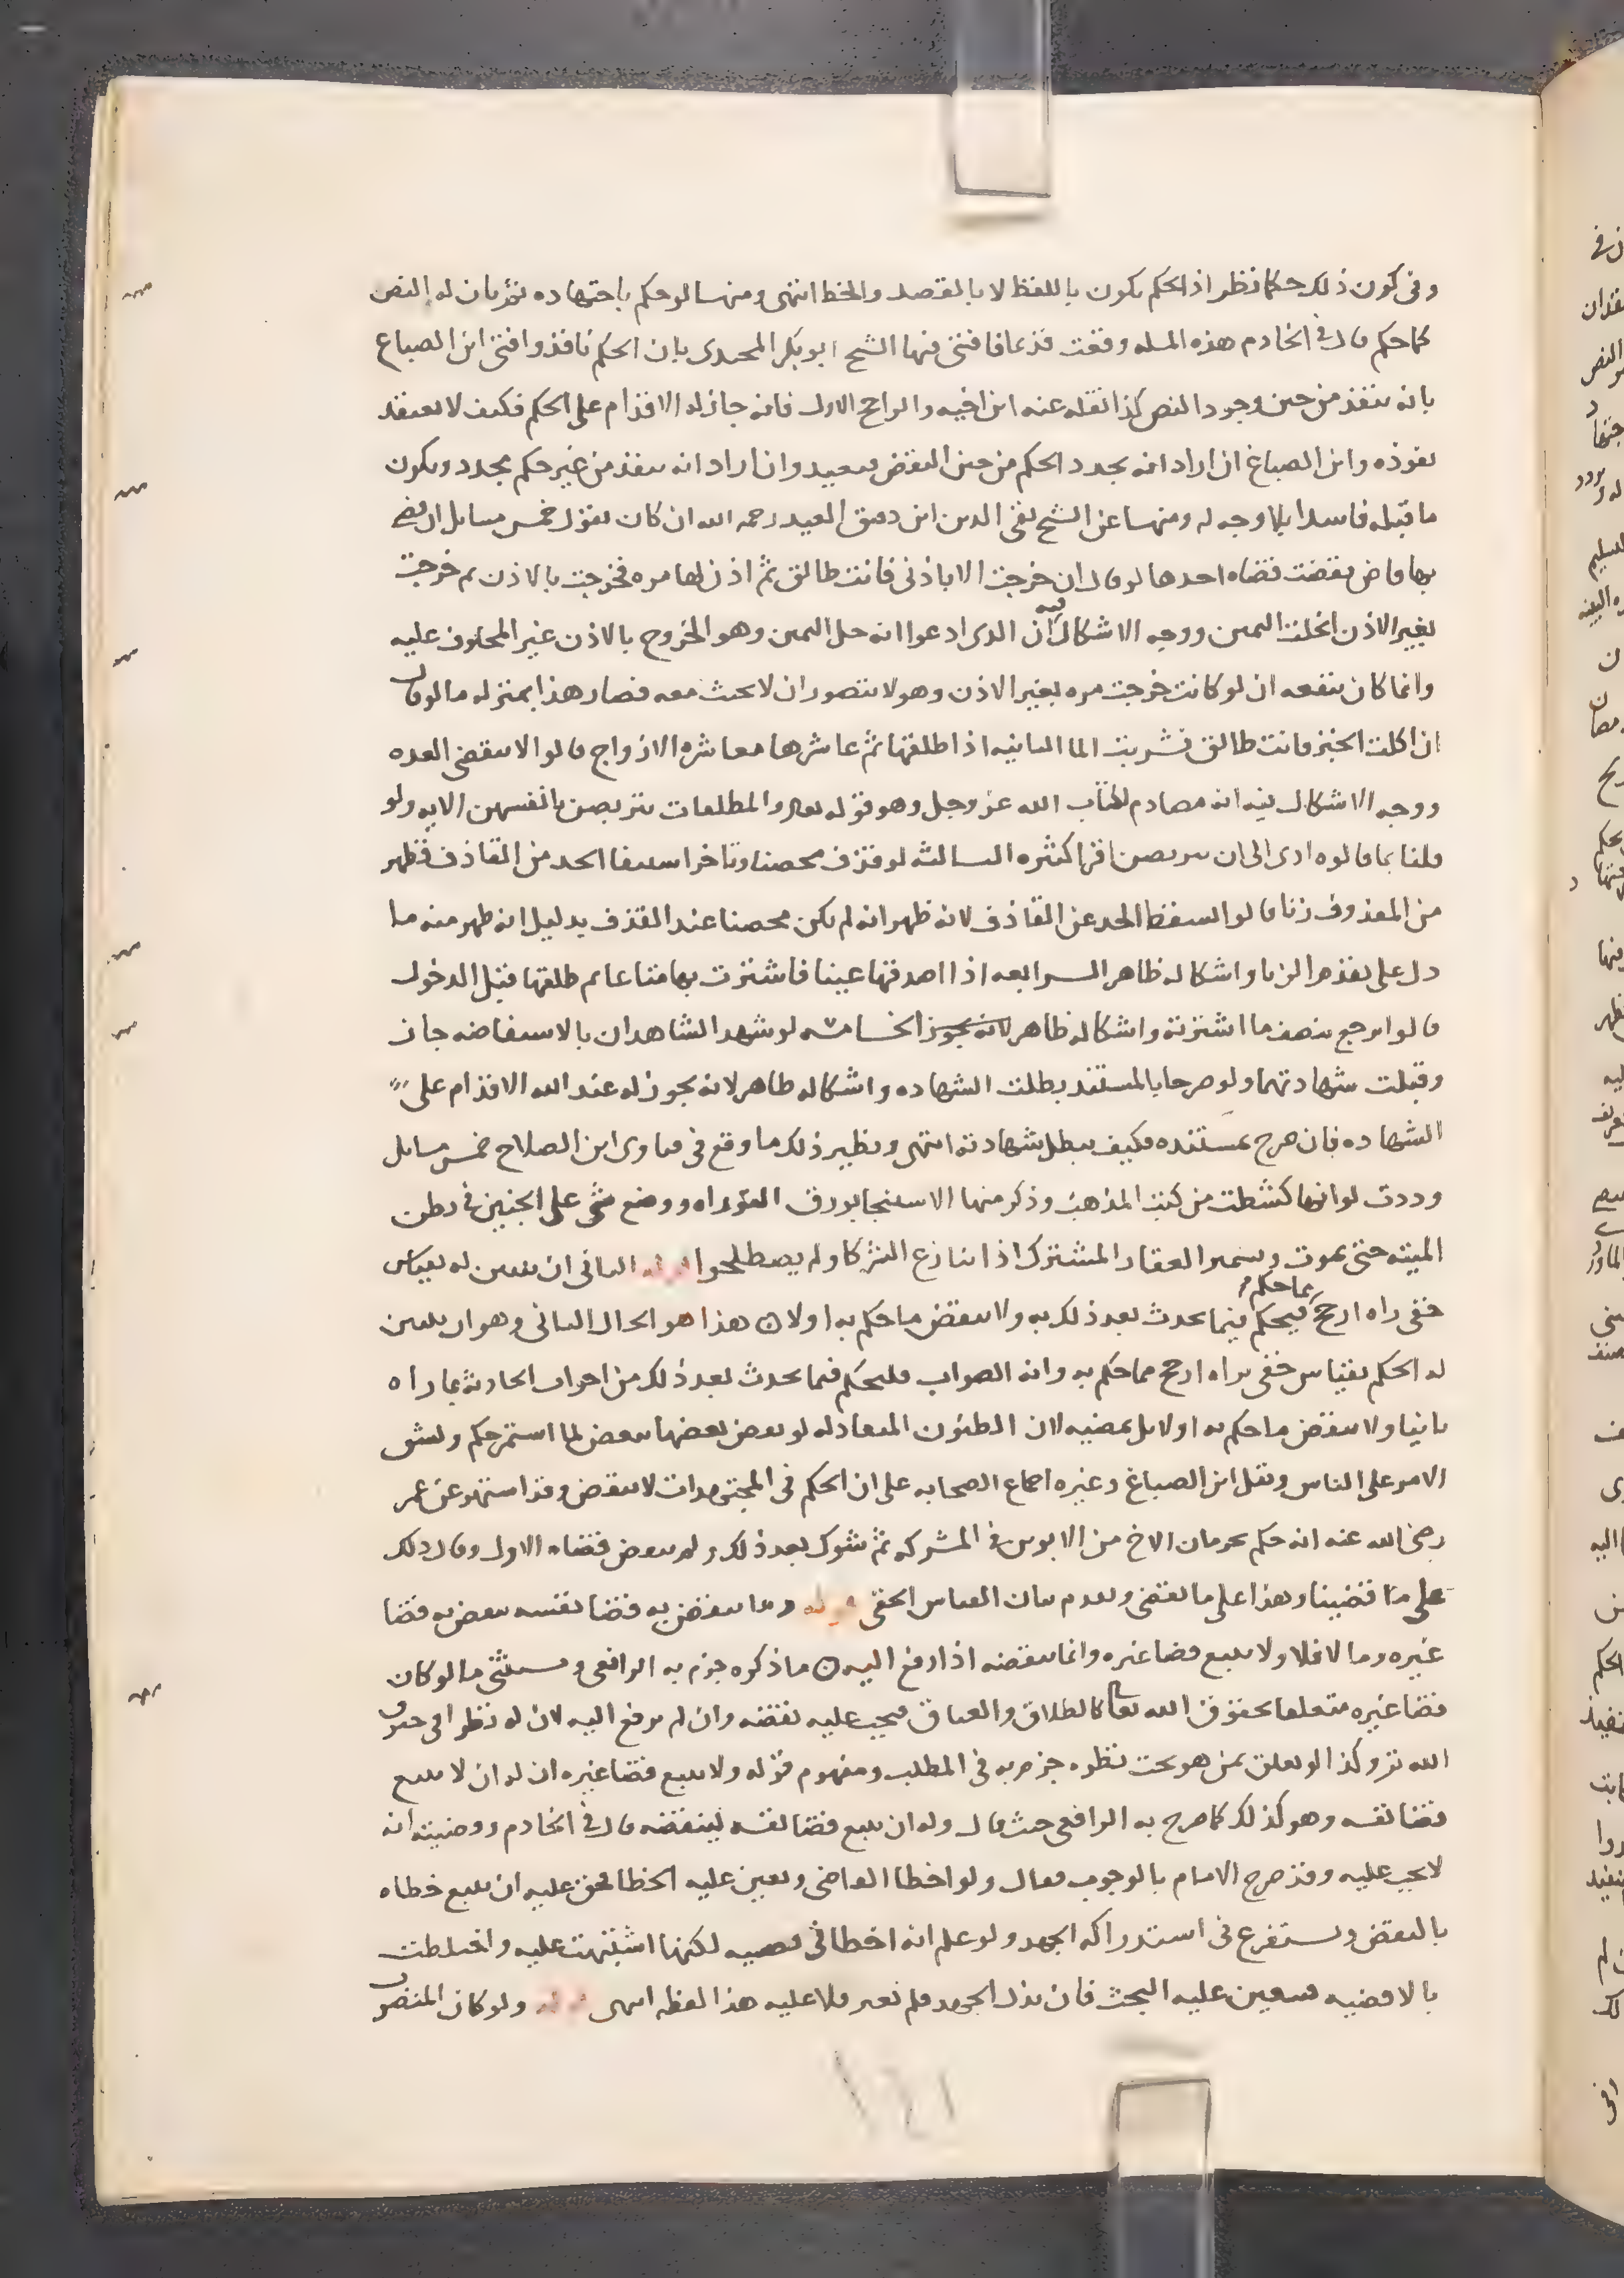 وفي كون ذلك حكما نظر اذ الحكم يكون باللفظ لا بالقصد والخط انتهى ومنها لو حكم باجتهاده ثم بان له النص
كما حكم قال في الخادم هذه المسله وقعت قديما فافتى فيها الشيخ ابو بكر المحمدى بان الحكم نافذ وافتى ابن الصباغ
بانه ينفذ من حين وجود النص كذا نقله عنه ابن اخيه والراجح الاول فانه جاز له الاقدام على الحكم فكيف لا يعتقد
نفوذه وابن الصباغ ان اراد انه يجدد الحكم من حين النقض فبعيد وان اراد انه ينفذ من غير حكم مجدد ويكون
ما قبله فاسدا فلا وجه له ومنها عن الشيخ تقي الدين ابن دقيق العيد رحمه الله ان كان يقول خمس مسائل ان قضى
بها قاض نقضت قضاه احدها لو قال ان خرجت الا باذنى فانت طالق ثم اذن لها مره فخرجت بالاذن ثم خرجت
بغير الاذن انحلت اليمين ووجه الاشكال فيه ان الذى ادعوا انه حل اليمين وهو الخروج بالاذن غير المحلوف عليه
وانما كان ينفعه ان لو كانت خرجت مره بغير الاذن وهو لا يتصور ان لا يحنث معه فصار هذا بمنزله ما لو قال
ان اكلت الخبز فانت طالق فشربت الما الثانيه اذا طلقها ثم عاشرها معاشره الازواج قالوا لا تنقضى العده
ووجه الاشكال فيه انه مصادم لكتاب الله عز وجل وهو قوله تعالى والمطلقات يتربصن بانفسهن الايه ولو
قلنا بما قالوه ادى الى ان يتربصن اقرا كثيره الثالثه لو قذف محصنا وتاخر استيفا الحد من القاذف فظهر
من المقذوف زنا قالوا يسقط الحد عن القاذف لانه ظهر انه لم يكن محصنا عند القذف بدليل انه ظهر منه ما
دل على تقدم الزنا واشكاله ظاهر الرابعه اذا اصدقها عينا فاشترت بها متاعا ثم طلقها قبل الدخول
قالوا يرجع بنصف ما اشترته واشكاله ظاهر لانه يجوز الخامسه لو شهد الشاهدان بالاستفاضه جاز
وقبلت شهادتهما ولو صرحا بالمستند بطلت الشهاده واشكاله ظاهر لانه يجوز له عند الله الاقدام على
الشهاده فان صرح بمستنده فكيف تبطل شهادته انتهى ونظير ذلك ما وقع في فتاوى ابن الصلاح خمس مسايل
وددت لو انها كشطت من كتب المذهب وذكر منها الاستنجا بورق التوراه ووضع شى على الجنين في بطن
الميته حتى يموت وتسمير العقار المشترك اذا تنازع الشركا ولم يصطلحوا قوله الثانى ان تبين له بقياس
خفى راه ارجح مما حكم به فيحكم فيما يحدث بعد ذلك به ولا ينقض ما حكم به اولا هذا هو الحال الثانى وهو ان يتبين
له الحكم بقياس خفى يراه ارجح مما حكم به وانه الصواب فليحكم فيما يحدث بعد ذلك من اخوات الحادثه بما راه
ثانيا ولا ينقض ما حكم به اولا بل يمضيه لان الظنون المتعادله لو نقض بعضها ببعض لما استمر حكم ولشق
الامر على الناس ونقل ابن الصباغ وغيره اجماع الصحابه على ان الحكم في المجتهدات لا ينقض وقد اشتهر عن عمر
رضى الله عنه انه حكم بحرمان الاخ من الابوين في المشركه ثم شرك بعد ذلك ولم ينقض قضاه الاول وقال ذلك
على ما قضينا وهذا على ما نقضى وتقدم بيان القياس الخفى قوله وما ينقض به قضا نفسه ينقض به قضا
غيره وما لا فلا ولا يتتبع قضا غيره وانما ينقضه اذا رفع اليه ما ذكره جزم به الرافعى ويستثنى ما لو كان
قضا غيره متعلقا بحقوق الله تعالى كالطلاق والعتاق فيجب عليه نقضه وان لم يرفع اليه لان له نظرا فى حقوق
الله تر وكذا لو تعلق بمن هو تحت نظره جزم به في المطلب ومفهوم قوله ولا يتتبع قضا غيره ان له ان لا يتتبع
قضا نفسه وهو كذلك كما صرح به الرافعى حيث قال وله ان يتتبع قضا نفسه لينقضه قال في الخادم وقضيته انه
لا يجب عليه وقد صرح الامام بالوجوب فقال ولو اخطا القاضى وتعين عليه الخطا فحق عليه ان يتتبع خطاه
بالنقض ويستفرغ في استدراكه الجهد ولو علم انه اخطا في قضيه لكنها اشتبهت عليه واختلطت
بالاقضيه فيتعين عليه البحث فان بذل الجهد فلم يعثر فلا عليه هذا لفظه انتهى قوله ولو كان المنصوب